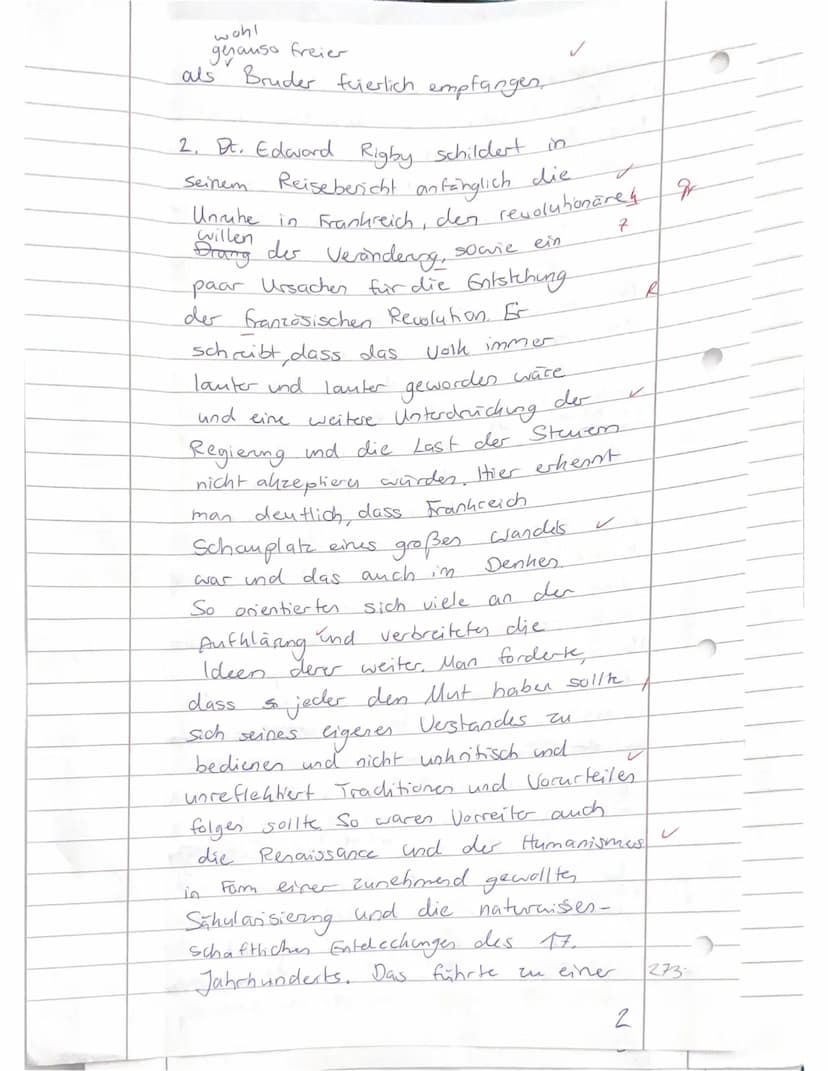 wohl
genauso freier
als Bruder feierlich empfangen.
2. Dr. Edward Rigby schildert in
seinem Reisebericht anfänglich die
Unruhe in Frankreich, den revolutionären
Gr
willen
?
Drang der Veränderung, sowie ein
paar Ursachen für die Entstehung
R
der französischen Revolution. Er
schreibt, dass das Volk immer
lauter und lauter geworden wäre
und eine weitere Unterdrückung der
Regierung und die Last der Steuern
nicht akzeptieren würden. Hier erkennt
man deutlich, dass Frankreich
Schauplatz eines großen Wandels
war und das auch im Denken.
So orientierten sich viele an der
Aufklärung und verbreiteten die
Ideen derer weiter. Man forderte,
dass jeder den Mut haben sollte
sich seines eigenen Verstandes zu
bedienen und nicht unkritisch und
unreflektiert Traditionen und Vorurteilen
folgen sollte. So waren Vorreiter auch
die Renaissance und der Humanismus
in Form einer zunehmend gewollten
Säkularisierung und die naturwissen-
schaftlichen Entdeckungen des 17.
Jahrhunderts. Das führte zu einer
273
2